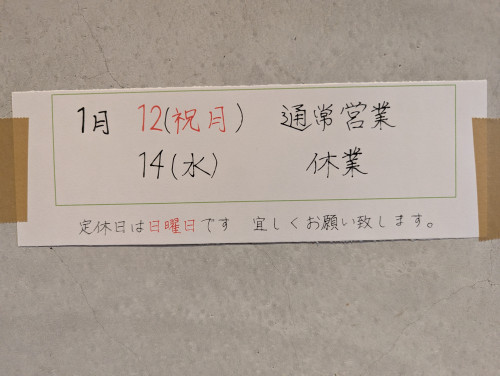 1月 12(祝月) 通常営業
14(水) 休業
定休日は日曜日です 宜しくお願い致します。